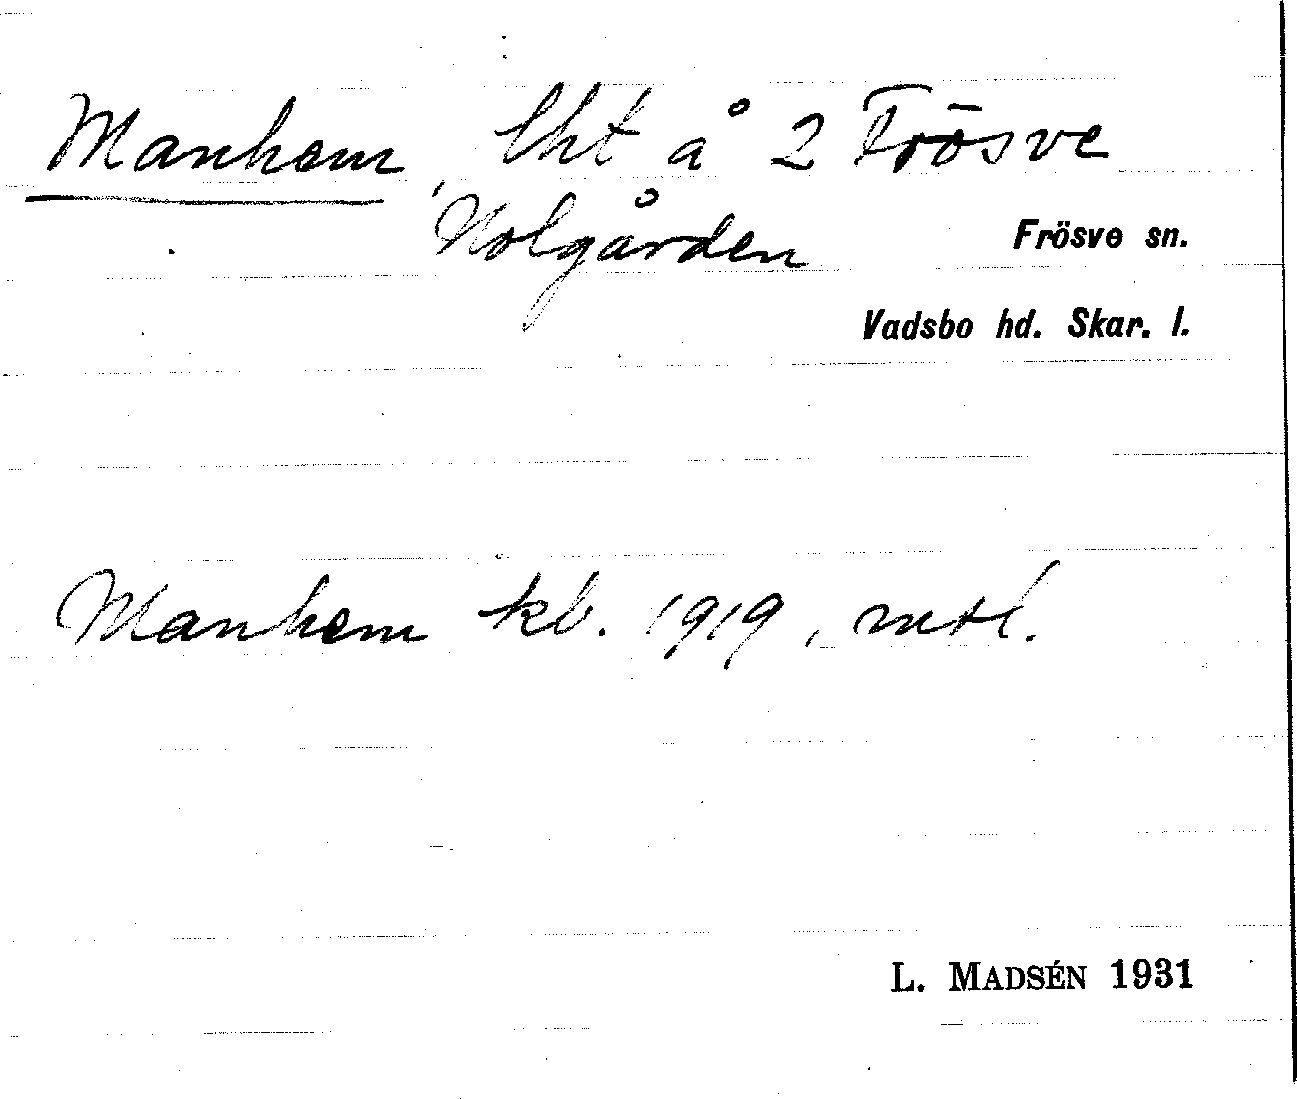 Manhem, lht å 2 Frösve
Nolgården
Frösve sn.
Vadsbo hd. Skar. l.
Manhem kb. 1919, mtl.
L. MADSÉN 1931